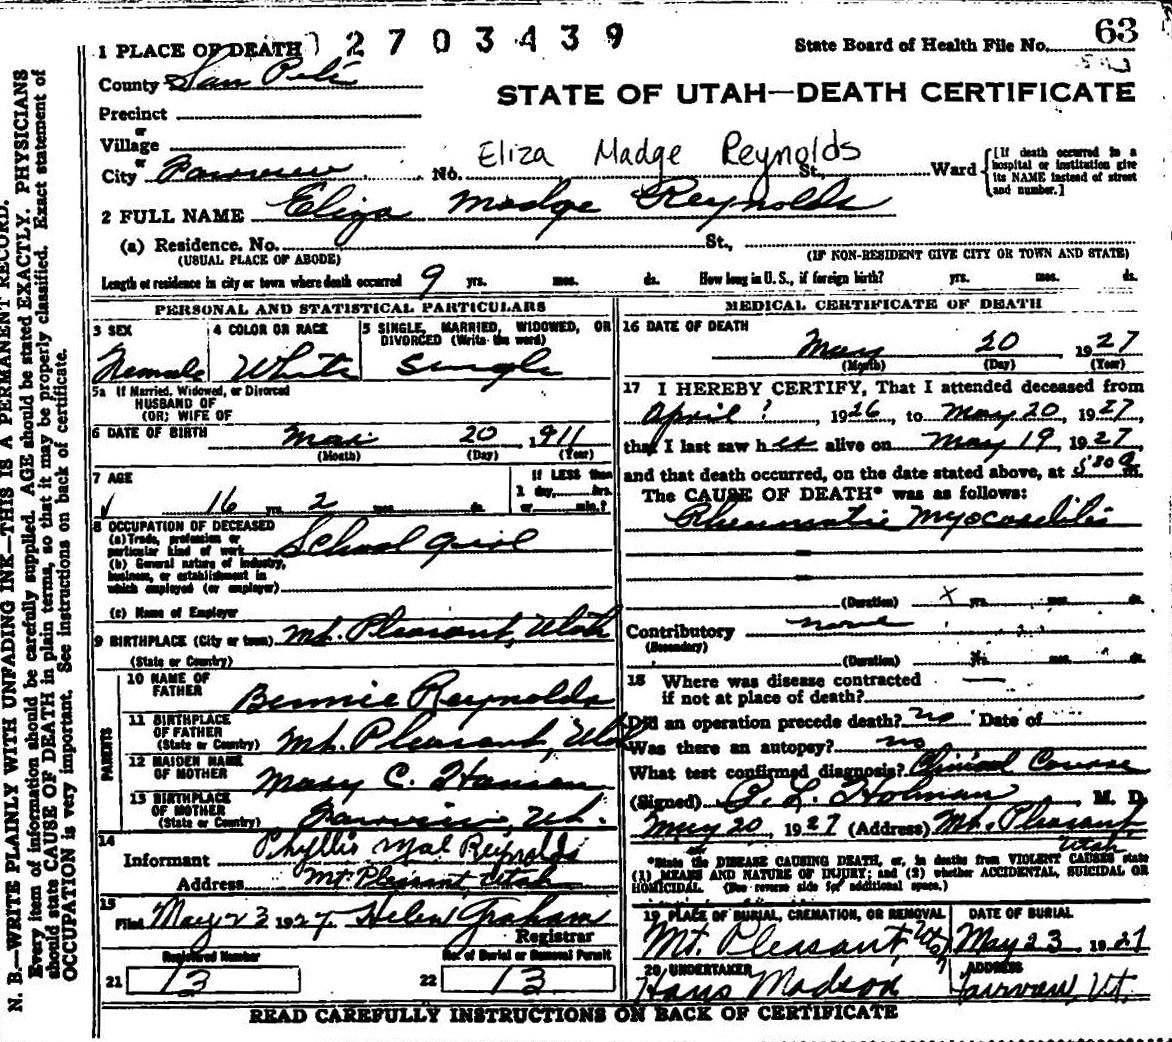 1 PLACE OF DEATH 2 7 0 3 4 3 9 State Board of Health File No. 63
County San Pete
STATE OF UTAH—DEATH CERTIFICATE
Precinct
or
Village
or
City Fairview No. Eliza Madge Reynolds St., Ward [If death occurred in a hospital or institution give its NAME instead of street and number.]
2 FULL NAME Eliza Madge Reynolds
(a) Residence. No. St.,
(USUAL PLACE OF ABODE) (IF NON-RESIDENT GIVE CITY OR TOWN AND STATE)
Length of residence in city or town where death occurred 9 yrs. mos. ds. How long in U. S., if foreign birth? yrs. mos. ds.
PERSONAL AND STATISTICAL PARTICULARS
3 SEX 4 COLOR OR RACE 5 SINGLE, MARRIED, WIDOWED, OR DIVORCED (Write the word)
Female White Single
5a If Married, Widowed, or Divorced
HUSBAND OF
(OR) WIFE OF
6 DATE OF BIRTH Mar 20, 1911
(Month) (Day) (Year)
7 AGE If LESS than
1 day, hrs.
16 yrs. 2 mos. ds. or min.?
8 OCCUPATION OF DECEASED
(a) Trade, profession or
particular kind of work School girl
(b) General nature of industry,
business, or establishment in
which employed (or employer)
(c) Name of Employer
9 BIRTHPLACE (City or town) Mt. Pleasant, Utah
(State or Country)
PARENTS
10 NAME OF
FATHER Bennie Reynolds
11 BIRTHPLACE
OF FATHER
(State or Country) Mt. Pleasant, Utah
12 MAIDEN NAME
OF MOTHER Mary C. Hansen
13 BIRTHPLACE
OF MOTHER
(State or Country) Fairview, Ut.
14
Informant Phyllis Mal Reynolds
Address Mt. Pleasant, Utah
15
Filed May 23 1927. Helen Graham
Registrar
Registered Number No. of Burial or Removal Permit
21 13 22 13
MEDICAL CERTIFICATE OF DEATH
16 DATE OF DEATH
May 20 1927
(Month) (Day) (Year)
17 I HEREBY CERTIFY, That I attended deceased from
April ? 1926 to May 20, 1927
that I last saw her alive on May 19 1927,
and that death occurred, on the date stated above, at m.
The CAUSE OF DEATH* was as follows:
Rheumatic Myocarditis
(Duration) yrs. mos. ds.
Contributory none
(Secondary)
(Duration) yrs. mos. ds.
18 Where was disease contracted —
if not at place of death?
Did an operation precede death? no Date of
Was there an autopsy? no
What test confirmed diagnosis? Clinical Course
(Signed) Holman, M. D.
May 20, 1927 (Address) Mt. Pleasant,
Utah
*State the DISEASE CAUSING DEATH, or, in deaths from VIOLENT CAUSES state
(1) MEANS AND NATURE OF INJURY; and (2) whether ACCIDENTAL, SUICIDAL OR
HOMICIDAL. (See reverse side for additional space.)
19 PLACE OF BURIAL, CREMATION, OR REMOVAL DATE OF BURIAL
Mt. Pleasant, Utah May 23, 1927
20 UNDERTAKER ADDRESS
Hans Madson Fairview, Ut.
READ CAREFULLY INSTRUCTIONS ON BACK OF CERTIFICATE
N. B.—WRITE PLAINLY WITH UNFADING INK—THIS IS A PERMANENT RECORD.
Every item of information should be carefully supplied. AGE should be stated EXACTLY. PHYSICIANS
should state CAUSE OF DEATH in plain terms, so that it may be properly classified. Exact statement of
OCCUPATION is very important. See instructions on back of certificate.